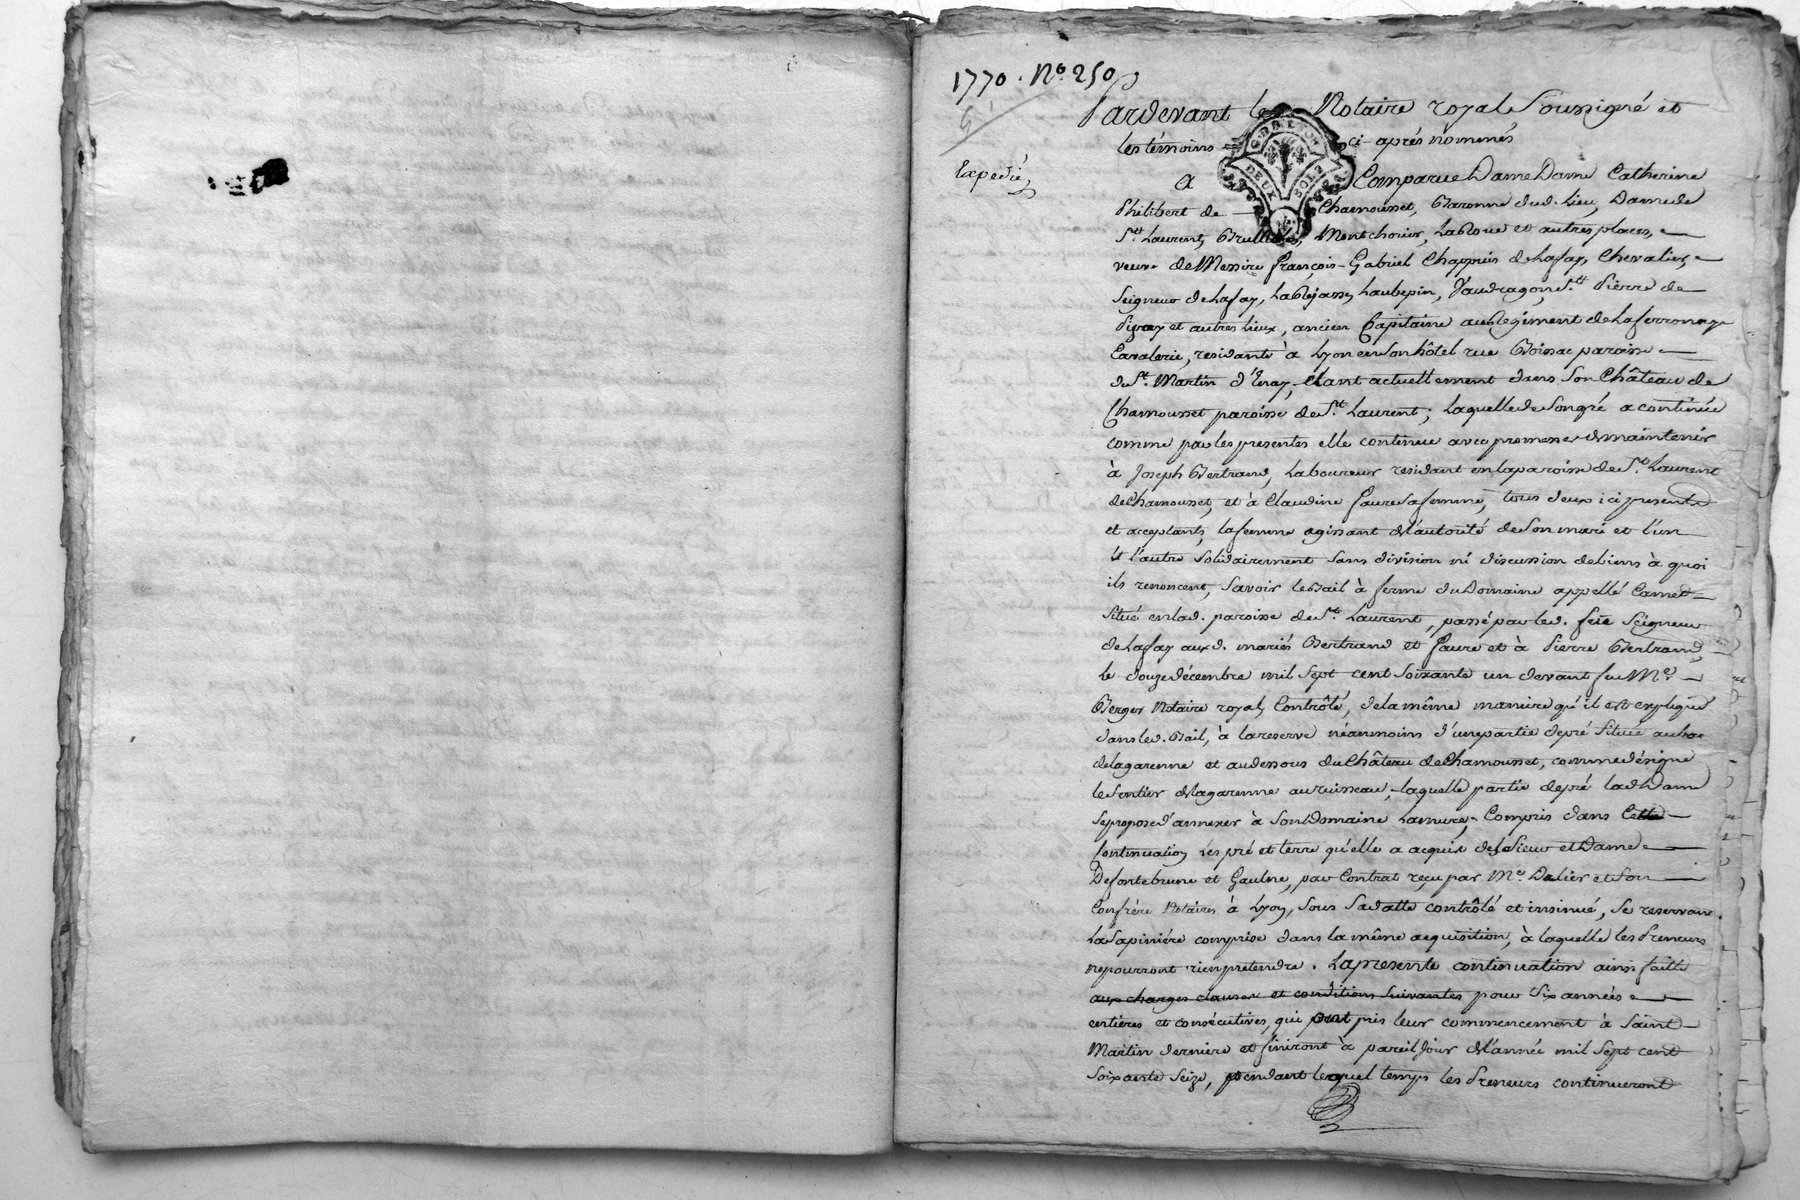 1770. N.o 250
Pardevant le Notaire royal Soussigné et
les témoins ci après nommés
Expedié
G DE LYON
DEUX SOLS
A Comparue Dame Dame Catherine
Philibert de Chamousset, Baronne dud. Lieu, Dame de
St. Laurent, Brullioles, Montchouir, La Roue et autres places,
veuve de Messire françois-Gabriel Chappuis de Lafay, Chevalier,
Seigneur de Lafay, Laubepin, Vaudragon, St. Pierre de
et autres Lieux, ancien Capitaine au Regiment de La ferronaye
Cavalerie, residante à Lyon en Son hôtel rue Boissac paroisse
de St. Martin d'Enay, Etant actuellement dans Son Château de
Chamousset paroisse de St. Laurent; laquelle de Son gré a continué
comme par les presentes elle continue avec promesse de maintenir
à Joseph Bertrand, Laboureur residant en la paroisse de St. Laurent
de Chamousset, et à Claudine faure Sa femme, tous deux ici presents
et acceptants, la femme agissant de l'autorité de Son mari et l'un
et l'autre Solidairement Sans division ni discussion de biens à quoi
ils renoncent, Savoir le Bail à ferme du Domaine appellé Carret
Situé en lad. paroisse de St. Laurent, passé par led. feu Seigneur
de Lafay aux d. mariés Bertrand et faure et à Pierre Bertrand,
le douze décembre mil Sept cent Soixante un devant feu Me.
Berger Notaire royal, Contrôlé, de la même maniere qu'il est expliqué
dans led. Bail, à la reserve néanmoins d'une partie de pré Située au bas
de la garenne et au dessous du Château de Chamousset, comme désigne
le Sentier de la garenne au ruisseau, laquelle partie de pré lad. Dame
Se propose d'annexer à Son Domaine Lamure, Compris dans Cette
Continuation Les pré et terre qu'elle a acquis des Sieur et Dame
De fontebrune et Gaulne, par Contrat reçu par Me. Dalier et Son
Confrère Notaires à Lyon, Sous Sa datte contrôlé et insinué, Se reservant
La Sapinière comprise dans la même acquisition, à laquelle les Preneurs
ne pourront rien prétendre. La presente continuation ainsi faitte
aux charges clauses et conditions Suivantes pour Six années
entières et consécutives, qui ont pris leur commencement à Saint
Martin derniere et finiront à pareil Jour de l'année mil Sept cent
Soixante Seize, pendant lequel temps les Preneurs continueront